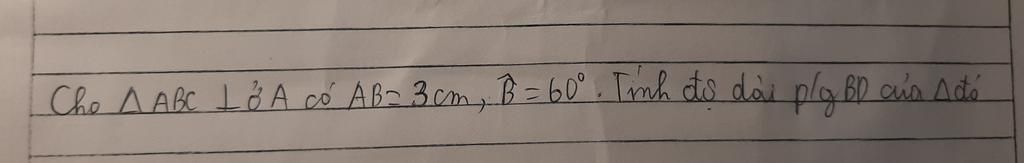 Cho △ABC ⊥ ở A có AB = 3cm, B̂ = 60°. Tính độ dài p/g BD của △ đó